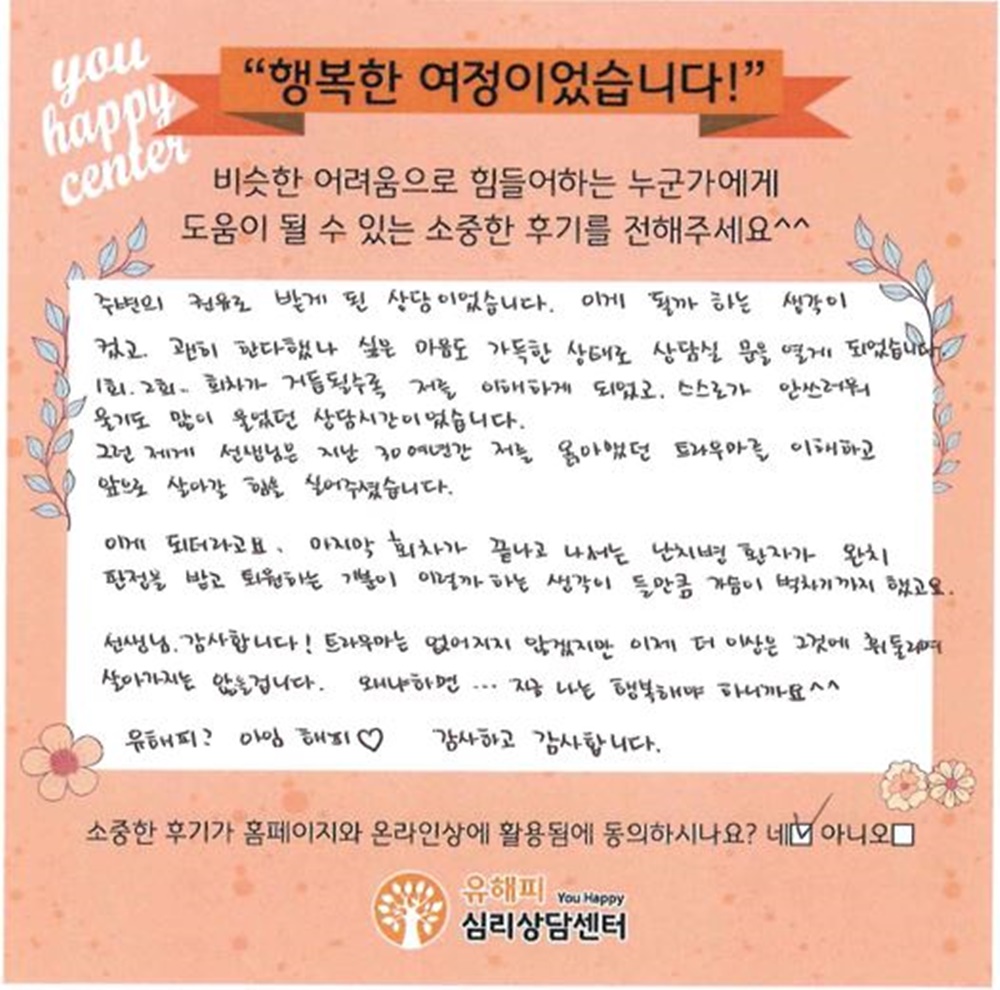 you
happy
center
“행복한 여정이었습니다!”
비슷한 어려움으로 힘들어하는 누군가에게
도움이 될 수 있는 소중한 후기를 전해주세요^^
주변의 권유로 받게 된 상담이었습니다. 이게 될까 하는 생각이
컸고. 괜히 한다했나 싶은 마음도 가득한 상태로 상담실 문을 열게 되었습니다.
1회. 2회.. 회차가 거듭될수록 저를 이해하게 되었고. 스스로가 안쓰러워
울기도 많이 울었던 상담시간이었습니다.
그런 제게 선생님은 지난 30여년간 저를 옭아맸던 트라우마를 이해하고
앞으로 살아갈 힘을 실어주셨습니다.
이게 되더라고요. 마지막 회차가 끝나고 나서는 난치병 환자가 완치
판정을 받고 퇴원하는 기분이 이럴까 하는 생각이 들만큼 가슴이 벅차기까지 했고요.
선생님. 감사합니다! 트라우마는 없어지지 않겠지만 이제 더 이상은 그것에 휘둘리며
살아가지는 않을겁니다. 왜냐하면 ... 지금 나는 행복해야 하니까요^^
유해피? 아임 해피♡ 감사하고 감사합니다.
소중한 후기가 홈페이지와 온라인상에 활용됨에 동의하시나요? 네☑ 아니오☐
유해피 You Happy
심리상담센터